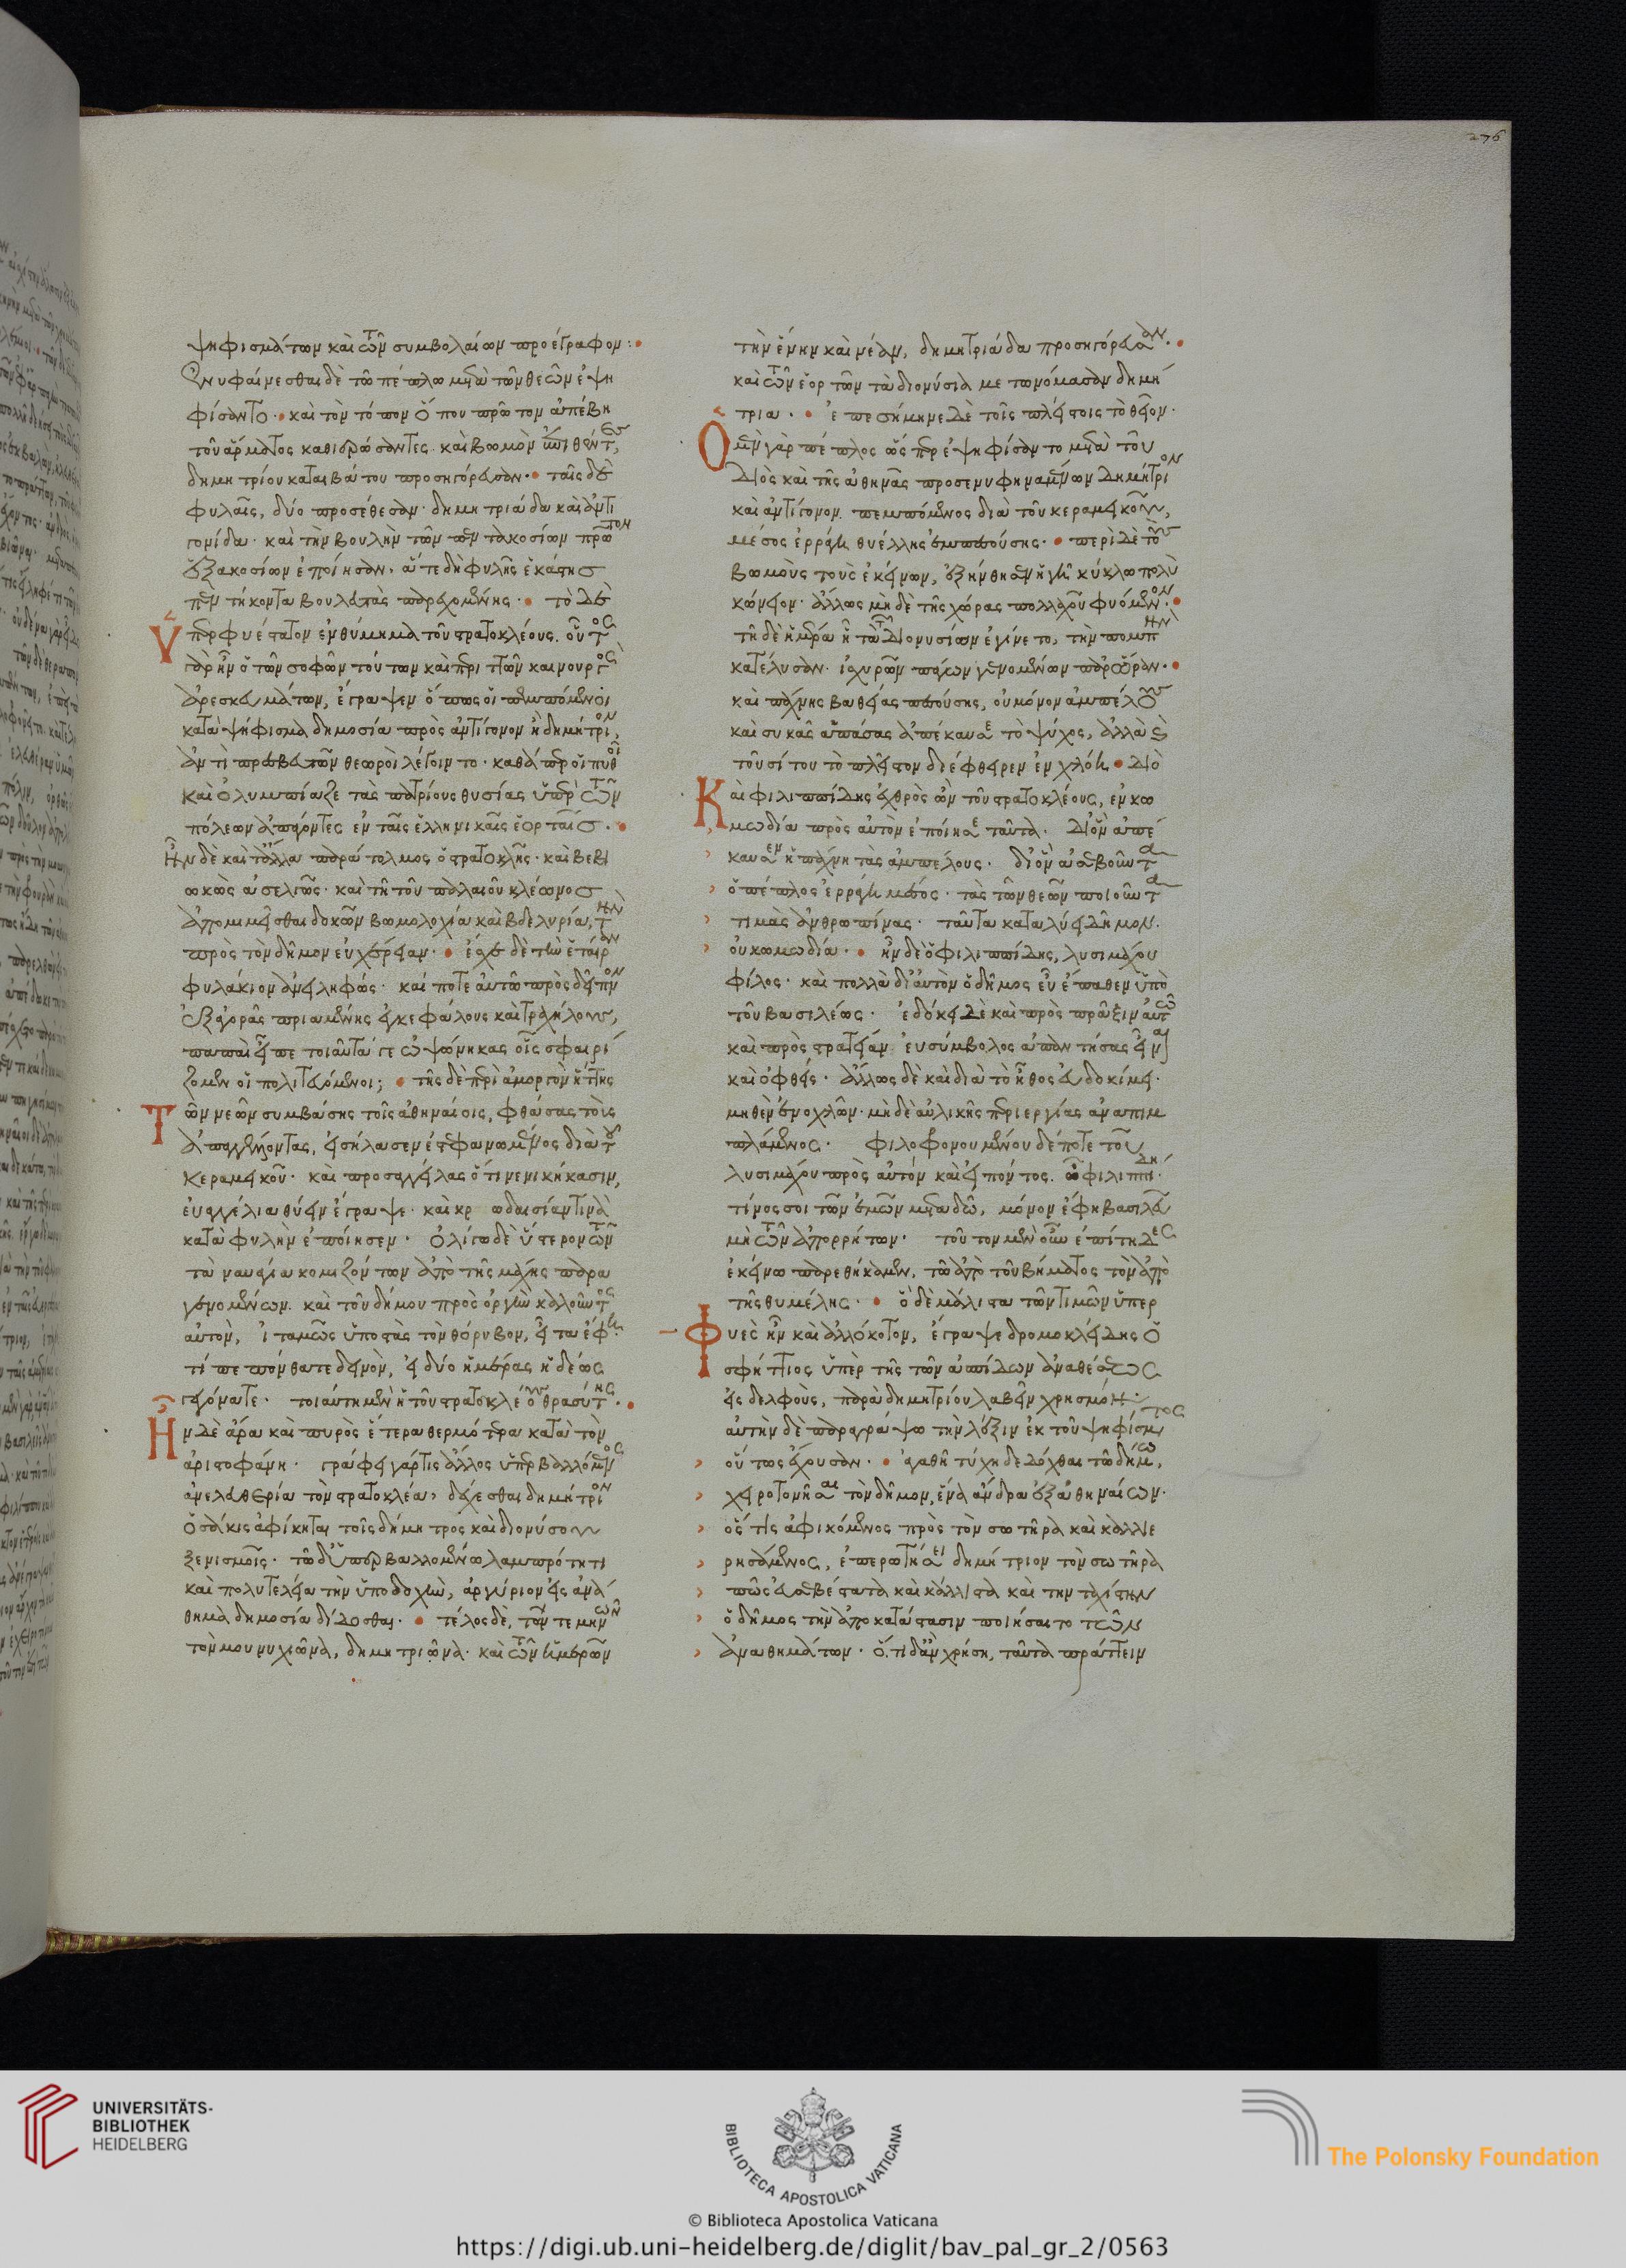 ψηφισμάτων καὶ τῶν συμβολαίων προέγραφον:
Ἐνυφαίνεσθαι δὲ τῷ πέπλῳ μετὰ τῶν θεῶν ἐψη
φίσαντο· καὶ τὸν τόπον ὅπου πρῶτον ἀπέβη
τοῦ ἅρματος καθιερώσαντες· καὶ βωμὸν ἐπιθέντες,
δημητρίου καταιβάτου προσηγόρευσαν· ταῖς δὲ
φυλαῖς, δύο προσέθεσαν· δημητριάδα καὶ ἀντι
γονίδα· καὶ τὴν βουλὴν τῶν πεντακοσίων πρῶτον
ἑξακοσίων ἐποίησαν, ἅτε δὴ φυλῆς ἑκάστης
πεντήκοντα βουλευτὰς παρεχομένης· τὸ δὲ
ὑπερφυέστατον ἐνθύμημα τοῦ στρατοκλέους. οὗτος
γὰρ ἦν ὁ τῶν σοφῶν τούτων καὶ περιττῶν καινουργὸς
ἀρεσκευμάτων, ἔγραψεν ὅπως οἱ πεμπόμενοι
κατὰ ψήφισμα δημοσίᾳ πρὸς ἀντίγονον ἢ δημήτριον,
ἀντὶ πρεσβευτῶν θεωροὶ λέγοιντο· καθάπερ οἱ πυθοῖ
καὶ ὀλυμπίαζε τὰς πατρίους θυσίας ὑπὲρ τῶν
πόλεων ἀπάγοντες ἐν ταῖς ἑλληνικαῖς ἑορταῖς.
Ἦν δὲ καὶ τἄλλα παράτολμος ὁ στρατοκλῆς· καὶ βεβι
ωκὼς ἀσελγῶς· καὶ τῇ τοῦ παλαιοῦ κλέωνος
ἀπομιμεῖσθαι δοκῶν βωμολοχίᾳ καὶ βδελυρίᾳ, τὴν
πρὸς τὸν δῆμον εὐχέρειαν· ἔσχε δὲ τὴν ἑταίραν
φυλάκιον ἀνειληφώς· καί ποτε αὐτῷ πρὸς δεῖπνον
ἐξ ἀγορᾶς πριαμένης ἐγκεφάλους καὶ τραχήλους,
παπαὶ εἶπε τοιαῦτά γε ὠψώνηκας οἷς σφαιρί
ζομεν οἱ πολιτευόμενοι; τῆς δὲ περὶ ἀμοργὸν ἥττης
τῶν νεῶν συμβάσης τοῖς ἀθηναίοις, φθάσας τοὺς
ἀπαγγέλλοντας, εἰσήλασεν ἐστεφανωμένος διὰ τοῦ
κεραμεικοῦ· καὶ προσαγγείλας ὅτι νενικήκασιν,
εὐαγγέλια θύειν ἔγραψε· καὶ κρεωδαισίαν τινὰ
κατὰ φυλὴν ἐποίησεν· ὀλίγῳ δὲ ὕστερον τῶν
τὰ ναυάγια κομιζόντων ἀπὸ τῆς μάχης παρα
γενομένων. καὶ τοῦ δήμου πρὸς ὀργὴν καλοῦντος
αὐτὸν, ἰταμῶς ὑποστὰς τὸν θόρυβον, εἶτα ἔφη
τί πεπόνθατε δεινὸν, εἰ δύο ἡμέρας ἡδέως
γεγόνατε· τοιαύτη μὲν ἡ τοῦ στρατοκλέους θρασύτης·
Ἦν δὲ ἄρα καὶ πυρὸς ἕτερα θερμότερα κατὰ τὸν
ἀριστοφάνη· γράφει γάρ τις ἄλλος ὑπερβαλλόμενος
ἀνελευθερίᾳ τὸν στρατοκλέα, δέχεσθαι δημήτριον
ὁσάκις ἀφίκηται τοῖς δήμητρος καὶ διονύσου
ξενισμοῖς· τῷ δ' ὑπερβαλλομένῳ λαμπρότητι
καὶ πολυτελείᾳ τὴν ὑποδοχὴν, ἀργύριον εἰς ἀνά
θημα δημοσίᾳ δίδοσθαι· τέλος δὲ, τῶν τε μηνῶν
τὸν μουνυχιῶνα, δημητριῶνα· καὶ τῶν ἡμερῶν
τὴν ἕνην καὶ νέαν, δημητριάδα προσηγόρευσαν·
καὶ τῶν ἑορτῶν τὰ διονύσια μετωνόμασαν δημή
τρια· ἐπεσήμηνε δὲ τοῖς πλείστοις τὸ θεῖον·
Ὁ μὲν γὰρ πέπλος ὥσπερ ἐψηφίσαντο μετὰ τοῦ
Διὸς καὶ τῆς ἀθηνᾶς προσενυφηναμένων Δημήτριον
καὶ ἀντίγονον. πεμπόμενος διὰ τοῦ κεραμεικοῦ,
μέσος ἐρράγη θυέλλης ἐμπεσούσης· περὶ δὲ τοὺς
βωμοὺς τοὺς ἐκείνων, ἐξήνθησεν ἡ γῆ κύκλῳ πολὺ
κώνειον· ἄλλως μὴ δὲ τῆς χώρας πολλαχοῦ φυόμενον·
τῇ δὲ ἡμέρᾳ ᾗ τὰ τῶν Διονυσίων ἐγίνετο, τὴν πομπὴν
κατέλυσαν· ἰσχυρῶν πάγων γενομένων παρ' ὥραν·
καὶ πάχνης βαθείας πεσούσης, οὐ μόνον ἀμπέλους
καὶ συκᾶς ἁπάσας ἀπέκαυσε τὸ ψύχος, ἀλλὰ καὶ
τοῦ σίτου τὸ πλεῖστον διέφθειρεν ἐν χλόῃ· Διὸ
Καὶ φιλιππίδης ἐχθρὸς ὢν τοῦ στρατοκλέους, ἐν κω
μωδίᾳ πρὸς αὐτὸν ἐποίησε ταῦτα· Δι' ὃν ἀπέ
καυσεν ἡ πάχνη τὰς ἀμπέλους· δι' ὃν ἀσεβοῦντα
ὁ πέπλος ἐρράγη μέσος· τὰς τῶν θεῶν ποιοῦντα
τιμὰς ἀνθρωπίνας· ταῦτα καταλύει Δῆμον.
οὐ κωμωδία· ἦν δὲ ὁ φιλιππίδης, λυσιμάχου
φίλος· καὶ πολλὰ δι' αὐτὸν ὁ δῆμος εὖ ἔπαθεν ὑπὸ
τοῦ βασιλέως· ἐδόκει δὲ καὶ πρὸς πρᾶξιν αὐτῷ
καὶ πρὸς στρατείαν εὐσύμβολος ἀπαντήσας εἶναι
καὶ ὀφθείς· ἄλλως δὲ καὶ διὰ τὸ ἦθος εὐδοκίμει·
μηθὲν ἐνοχλῶν· μὴ δὲ αὐλικῆς περιεργίας ἀναπιμ
πλάμενος· φιλοφρονουμένου δέ ποτε τοῦ
λυσιμάχου πρὸς αὐτὸν καὶ εἰπόντος. ὦ φιλιππίδη·
τίνος σοι τῶν ἐμῶν μεταδῶ, μόνον ἔφη βασιλεῦ
μὴ τῶν ἀπορρήτων· τοῦτον μὲν οὖν ἐπίτηδες
ἐκείνῳ παρεθήκαμεν, τῷ ἀπὸ τοῦ βήματος τὸν ἀπὸ
τῆς θυμέλης· ὃ δὲ μάλιστα τῶν τιμῶν ὑπερ
Φυὲς ἦν καὶ ἀλλόκοτον, ἔγραψε δρομοκλείδης ὁ
σφήττιος ὑπὲρ τῆς τῶν ἀσπίδων ἀναθέσεως
εἰς δελφοὺς, παρὰ δημητρίου λαβεῖν χρησμόν·
αὐτὴν δὲ παραγράψω τὴν λέξιν ἐκ τοῦ ψηφίσματος
οὕτως ἔχουσαν· ἀγαθῇ τύχῃ δεδόχθαι τῷ δήμῳ,
χειροτονῆσαι τὸν δῆμον, ἕνα ἄνδρα ἐξ ἀθηναίων·
ὅς τις ἀφικόμενος πρὸς τὸν σωτῆρα καὶ καλλιε
ρησάμενος, ἐπερωτήσει δημήτριον τὸν σωτῆρα
πῶς εὐσεβέστατα καὶ κάλλιστα καὶ τὴν ταχίστην
ὁ δῆμος τὴν ἀποκατάστασιν ποιήσαιτο τῶν
ἀναθημάτων· ὅ, τι δ' ἂν χρήσῃ, ταῦτα πράττειν
276
UNIVERSITÄTS-
BIBLIOTHEK
HEIDELBERG
BIBLIOTECA APOSTOLICA VATICANA
The Polonsky Foundation
© Biblioteca Apostolica Vaticana
https://digi.ub.uni-heidelberg.de/diglit/bav_pal_gr_2/0563